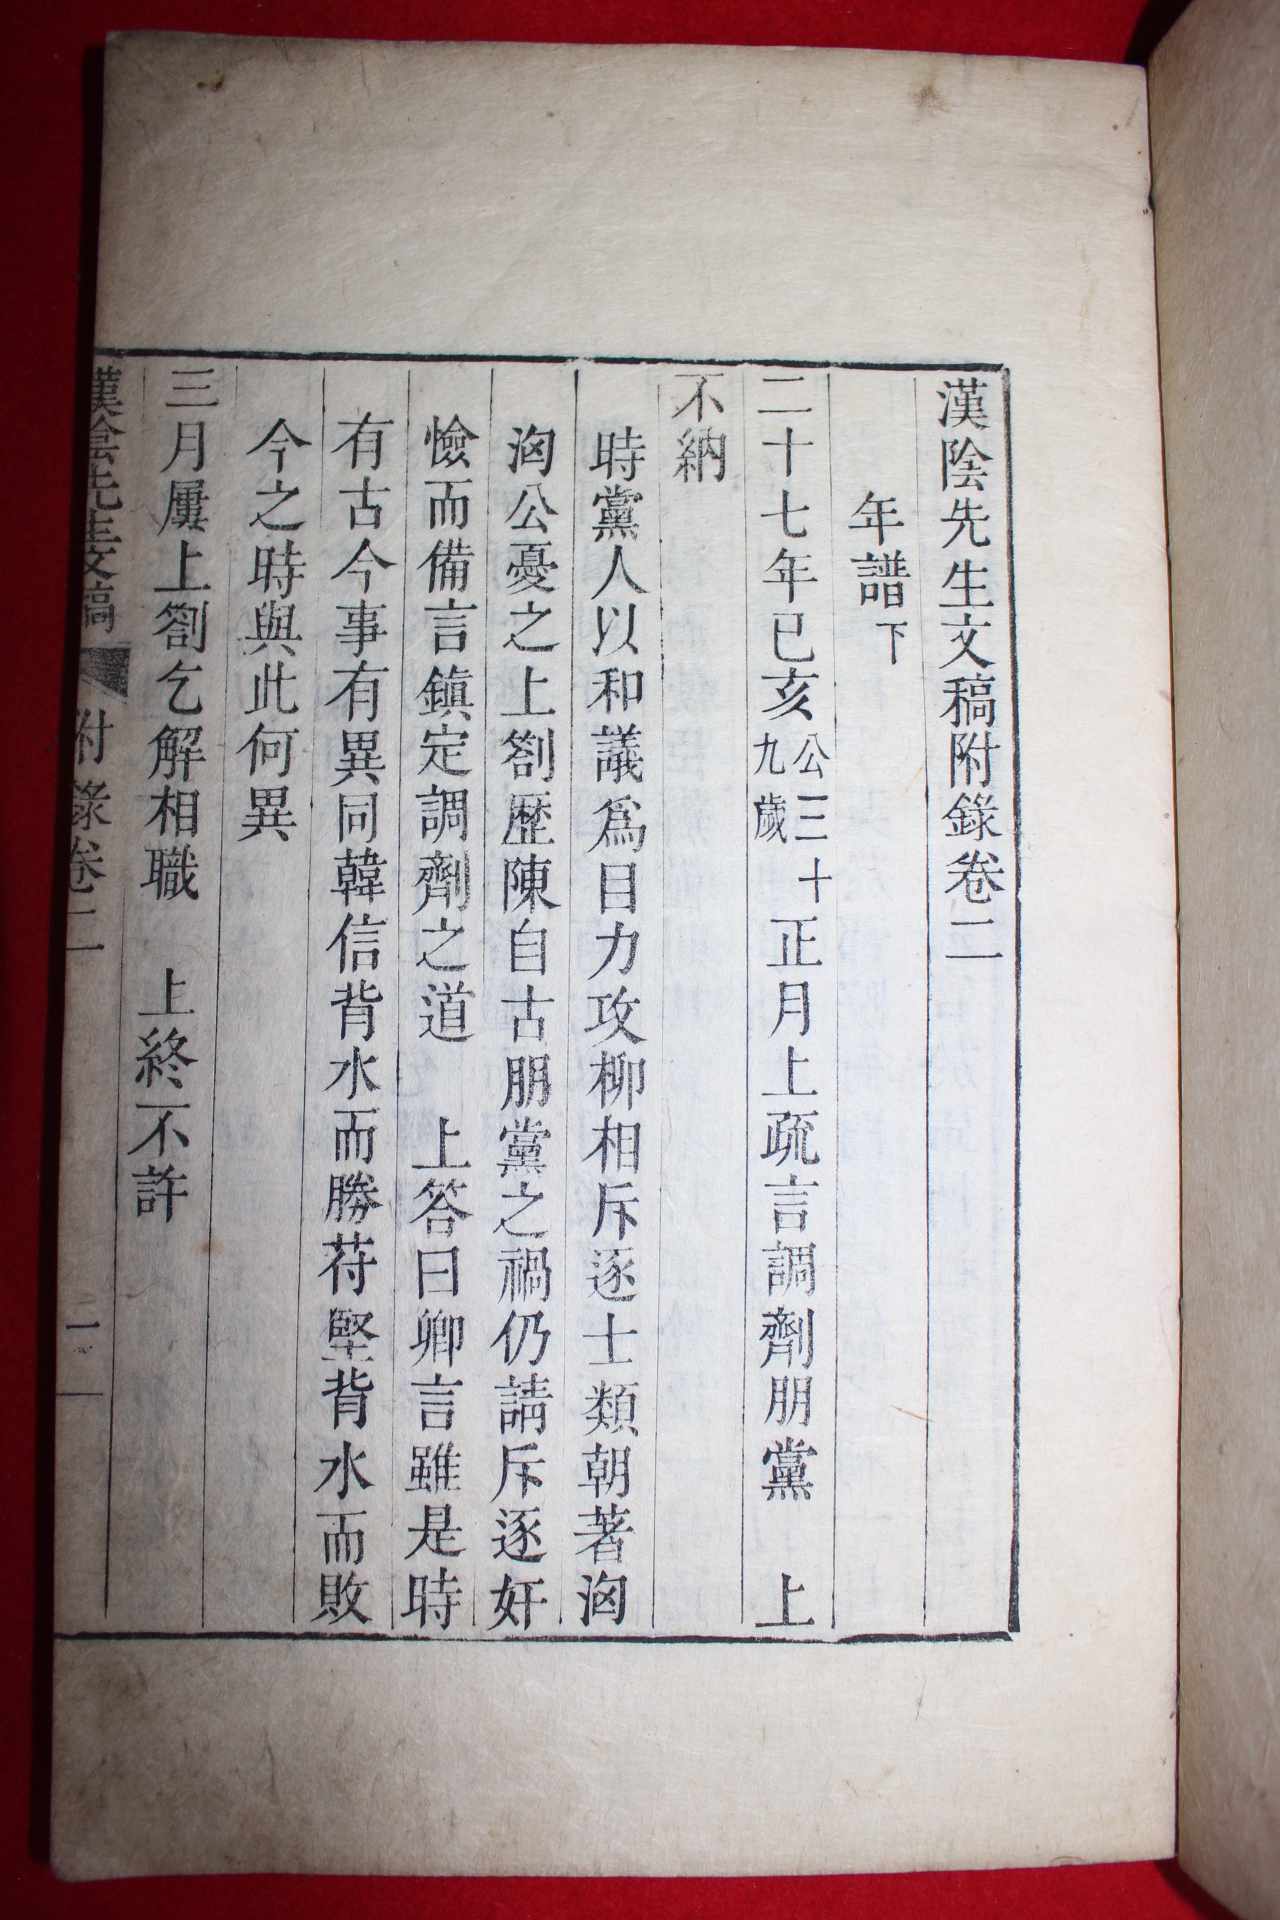 漢陰先生文稿附錄卷二
年譜下
二十七年己亥公三十九歲正月上疏言調劑朋黨 上
不納
時黨人以和議爲目力攻柳相斥逐士類朝著洶
洶公憂之上劄歷陳自古朋黨之禍仍請斥逐奸
憸而備言鎭定調劑之道 上答曰卿言雖是時
有古今事有異同韓信背水而勝苻堅背水而敗
今之時與此何異
三月屢上劄乞解相職 上終不許
漢陰先生文稿 附錄卷二 一